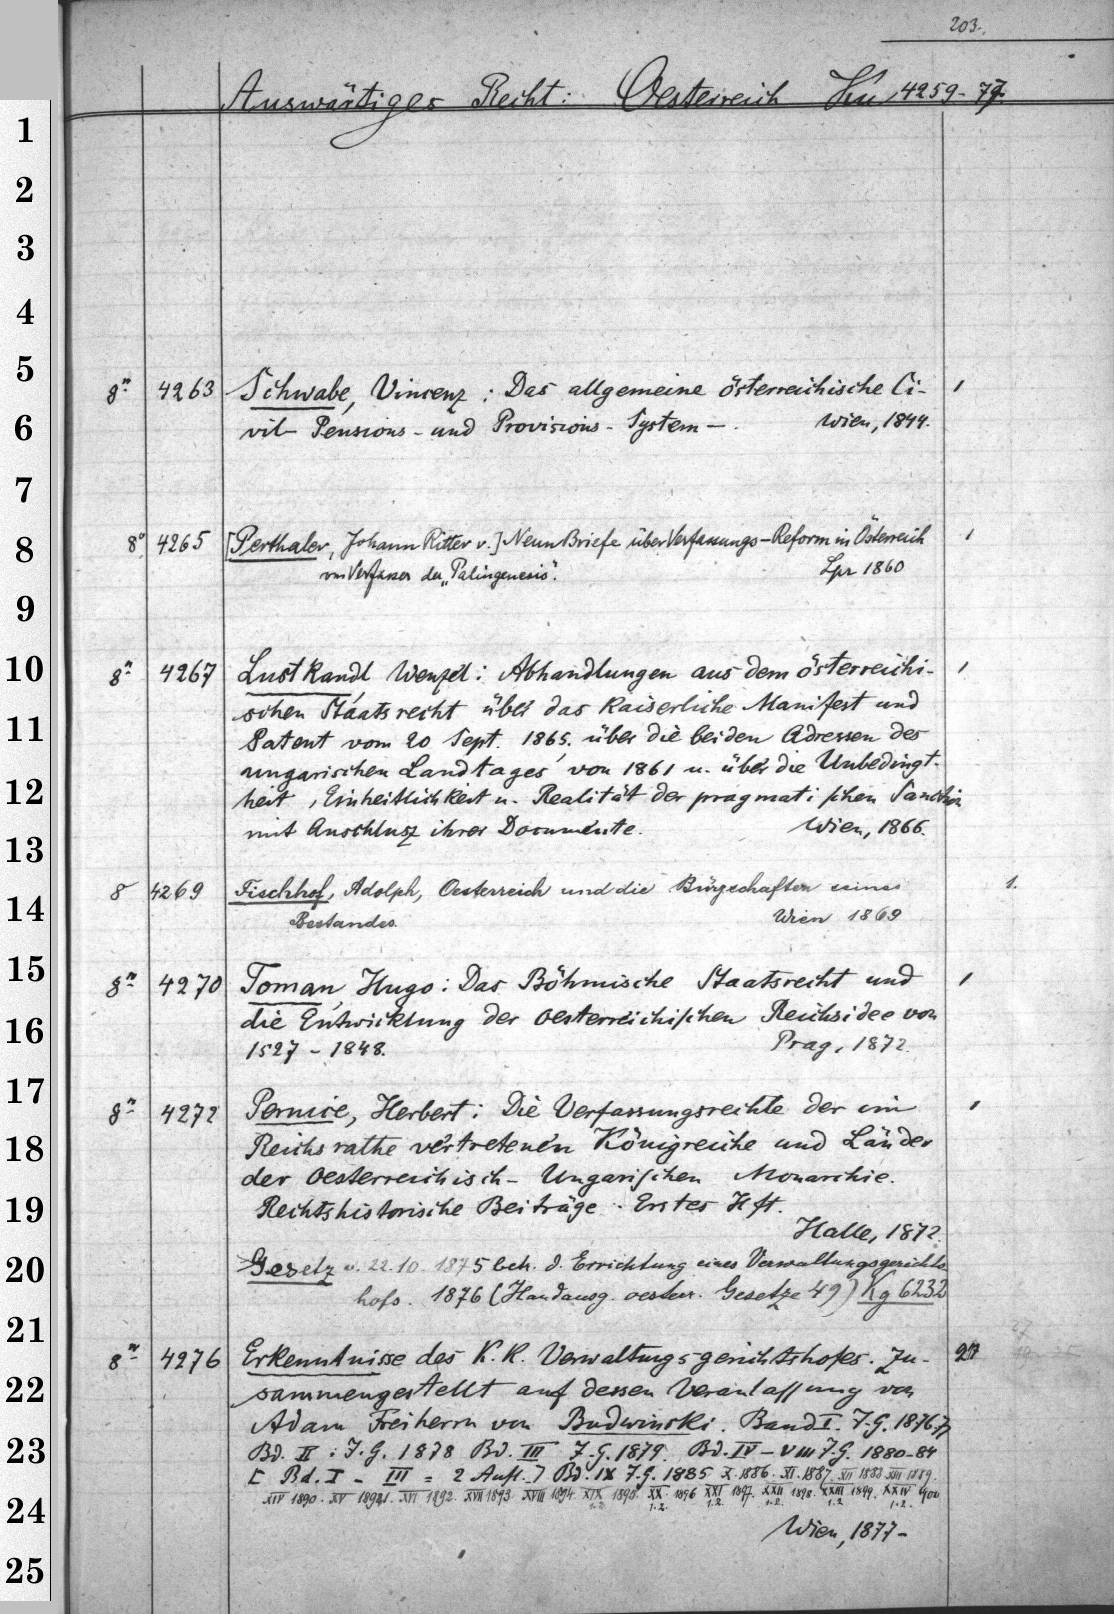 203.
Auswärtiges Recht: Oesterreich Ku 4259-77.
1
2
3
4
5
8º 4263 Schwabe, Vincenz: Das allgemeine österreichische Ci- 1
6 vil- Pensions- und Provisions-System —. Wien, 1844.
7
8 8º 4265 [Perthaler, Johann Ritter v.] Neun Briefe über Verfassungs-Reform in Österreich 1
vom Verfasser der „Palingenesis". Lpz 1860
9
10 8º 4267 Lustkandl, Wenzel: Abhandlungen aus dem österreichi- 1
schen Staatsrecht über das Kaiserliche Manifest und
11 Patent vom 20 Sept. 1865. über die beiden Adressen des
ungarischen Landtages von 1861 u. über die Unbedingt-
12 heit, Einheitlichkeit u. Realität der pragmatischen Sanction
mit Anschlusz ihrer Documente. Wien, 1866.
13
8 4269 Fischhof, Adolph, Oesterreich und die Bürgschaften seines 1.
14 Bestandes. Wien 1869
15 8º 4270 Toman, Hugo: Das Böhmische Staatsrecht und 1
16 die Entwicklung der oesterreichischen Reichsidee von
1527 - 1848. Prag, 1872.
17 8º 4272 Pernice, Herbert: Die Verfassungsrechte der im 1
18 Reichsrathe vertretenen Königreiche und Länder
der Oesterreichisch-Ungarischen Monarchie.
19 Rechtshistorische Beiträge. Erstes Hft.
Halle, 1872.
20 Gesetz v. 22.10.1875 betr. d. Errichtung eines Verwaltungsgerichts-
hofs. 1876 (Handausg. oesterr. Gesetze 49) Kg 6232
21
8º 4276 Erkenntnisse des K. K. Verwaltungsgerichtshofes. Zu-
22 sammengestellt auf dessen Veranlassung von
Adam Freiherrn von Budwinski. Band I. J.G. 1876.77
23 Bd. II: J.G. 1878 Bd. III J.G. 1879. Bd. IV-VIII J.G. 1880-84
[Bd. I - III = 2 Aufl.] Bd. IX J.G. 1885 X. 1886. XI. 1887. XII 1888 XIII 1889.
24 XIV 1890. XV 1891. XVI 1892. XVII 1893. XVIII 1894. XIX 1.2. 1895. XX. 1.2. 1896 XXI 1.2. 1897. XXII 1.2. 1898. XXIII 1.2 1899. XXIV 1.2. 900
Wien, 1877-
25